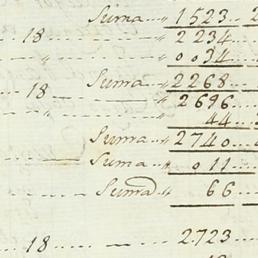 Suma.. " 1523.. 2
18 ..... " ....... 2234...
" ....... 0034...
Suma.. " 2268...
18 ..... — ....... 2696...
44...
Suma.. " 2740...
Suma.. " 011...
Suma " 66...
18 ..... — ..... 2723...